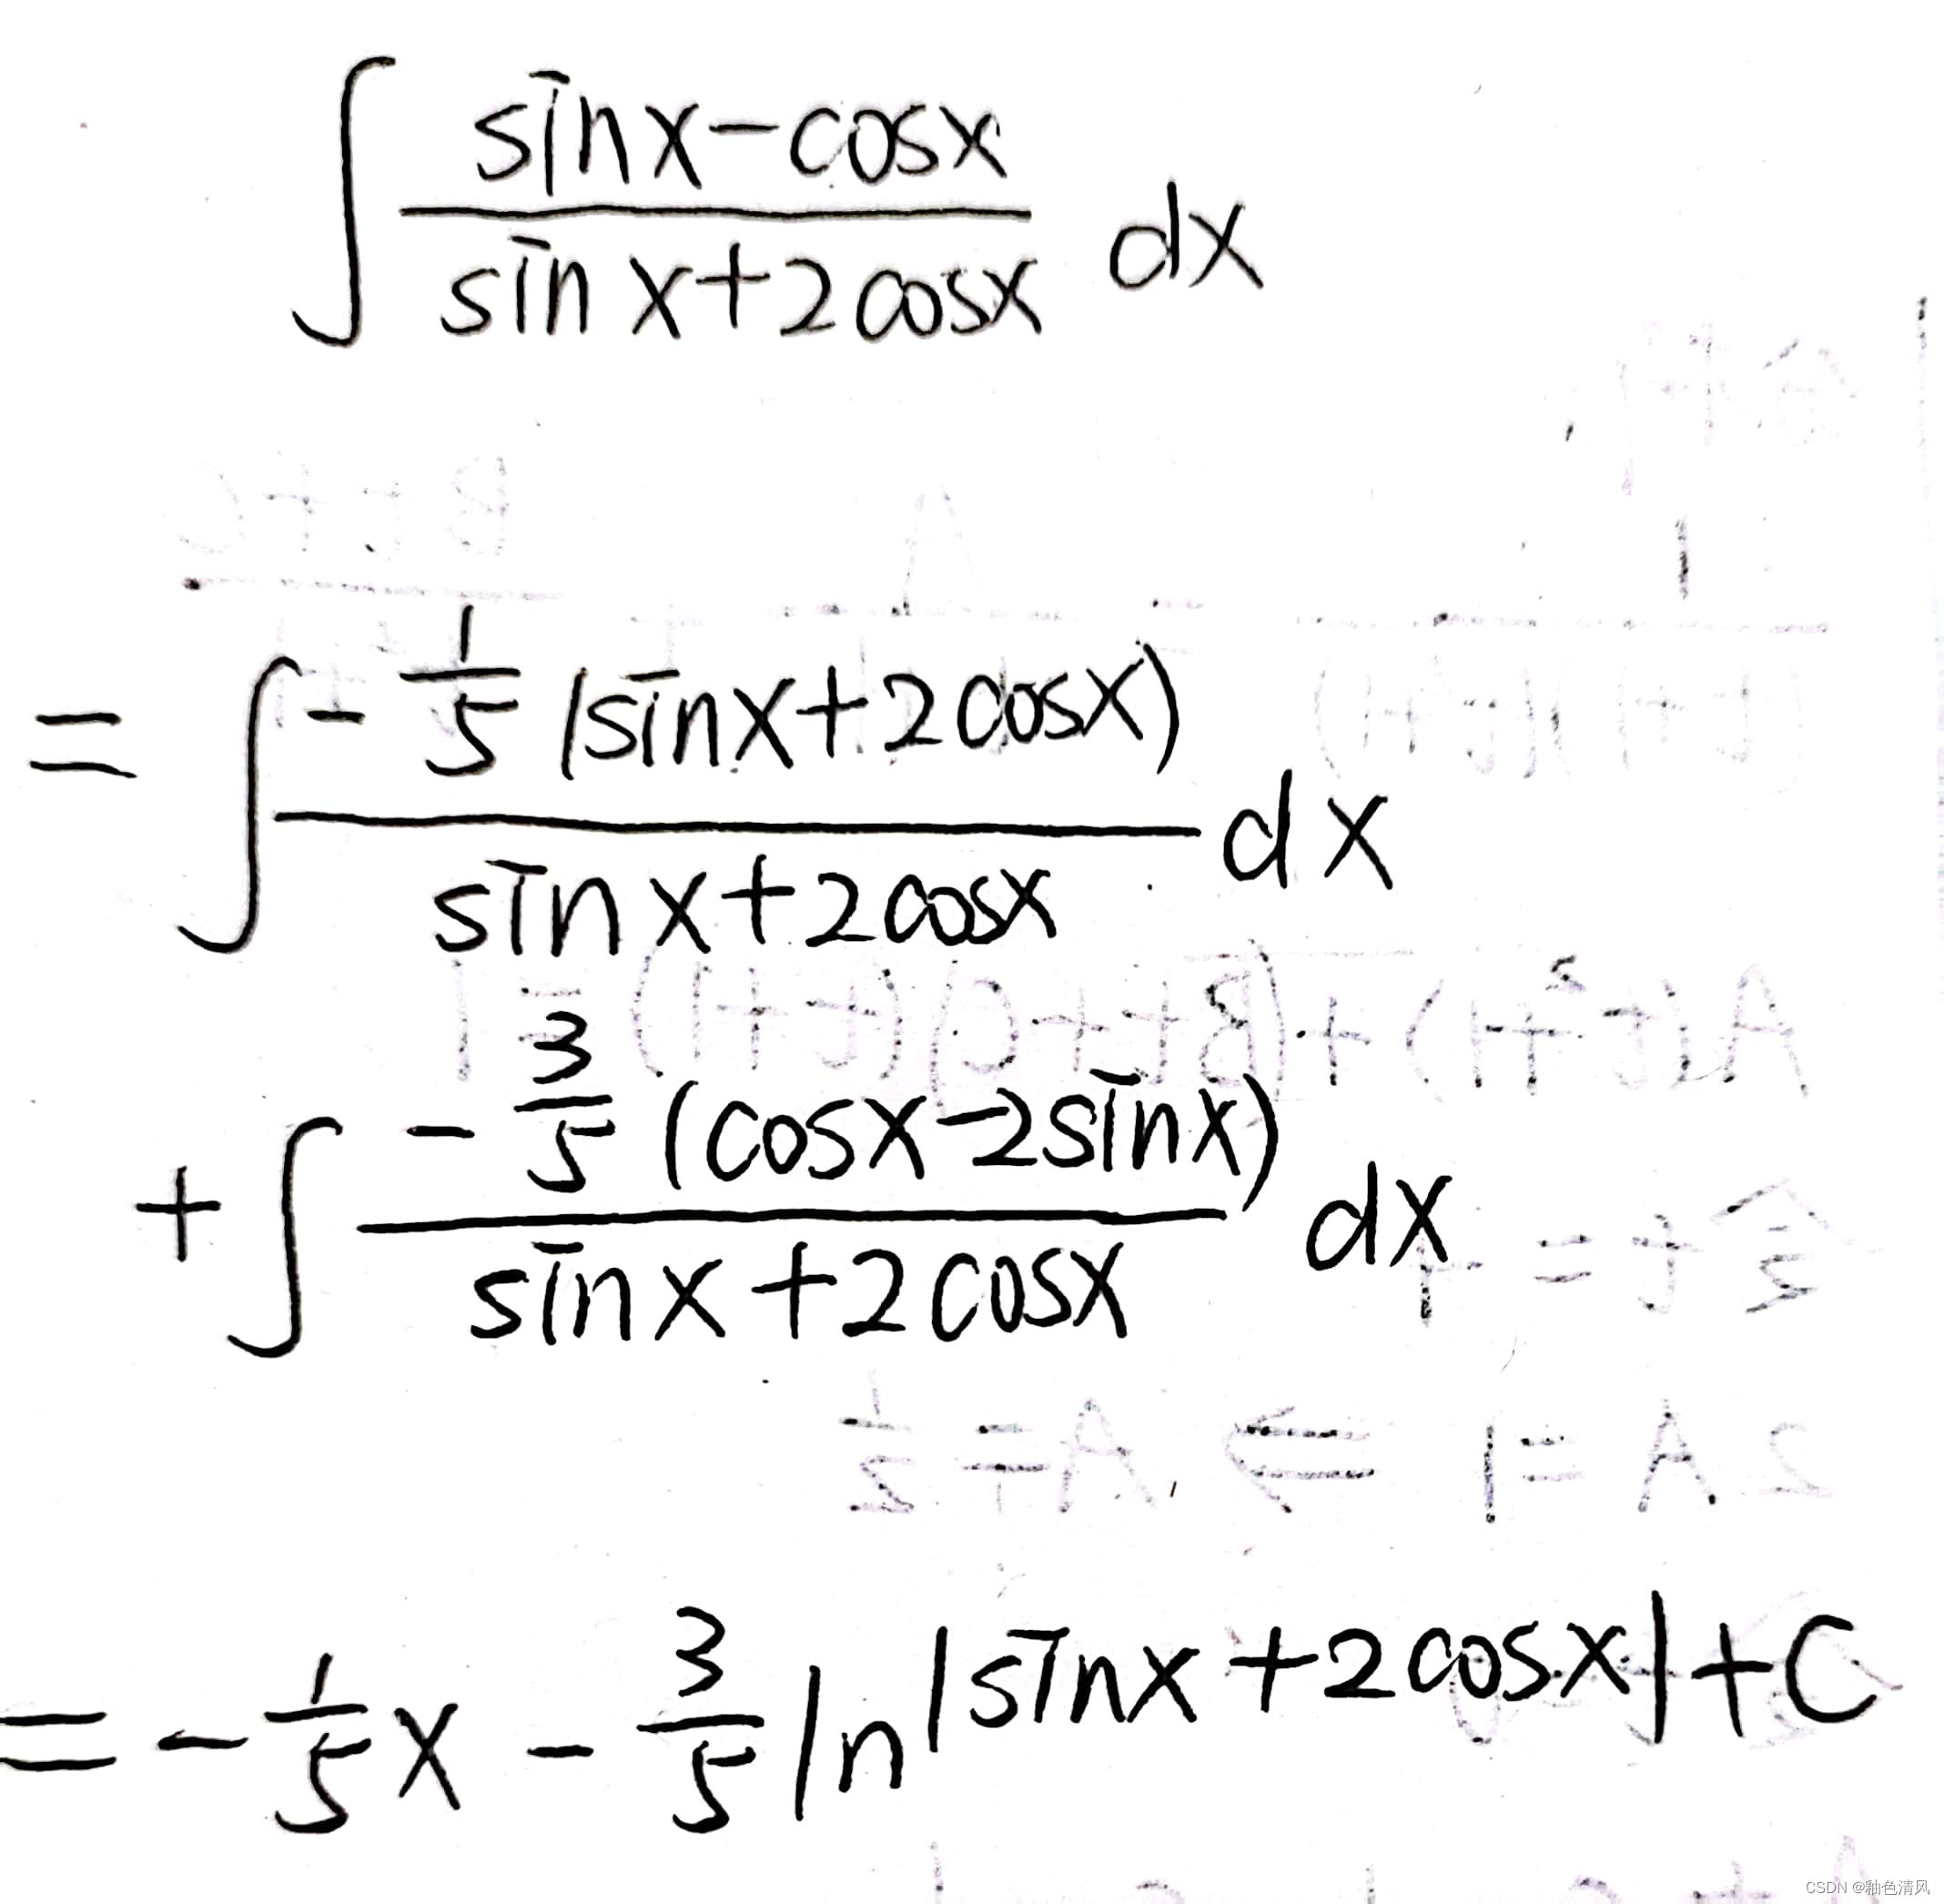 ∫ (sinx-cosx)/(sinx+2cosx) dx
= ∫ (-1/5 (sinx+2cosx))/(sinx+2cosx) dx
+ ∫ (-3/5 (cosx-2sinx))/(sinx+2cosx) dx
= -1/5 x - 3/5 ln|sinx+2cosx|+C
CSDN @釉色清风